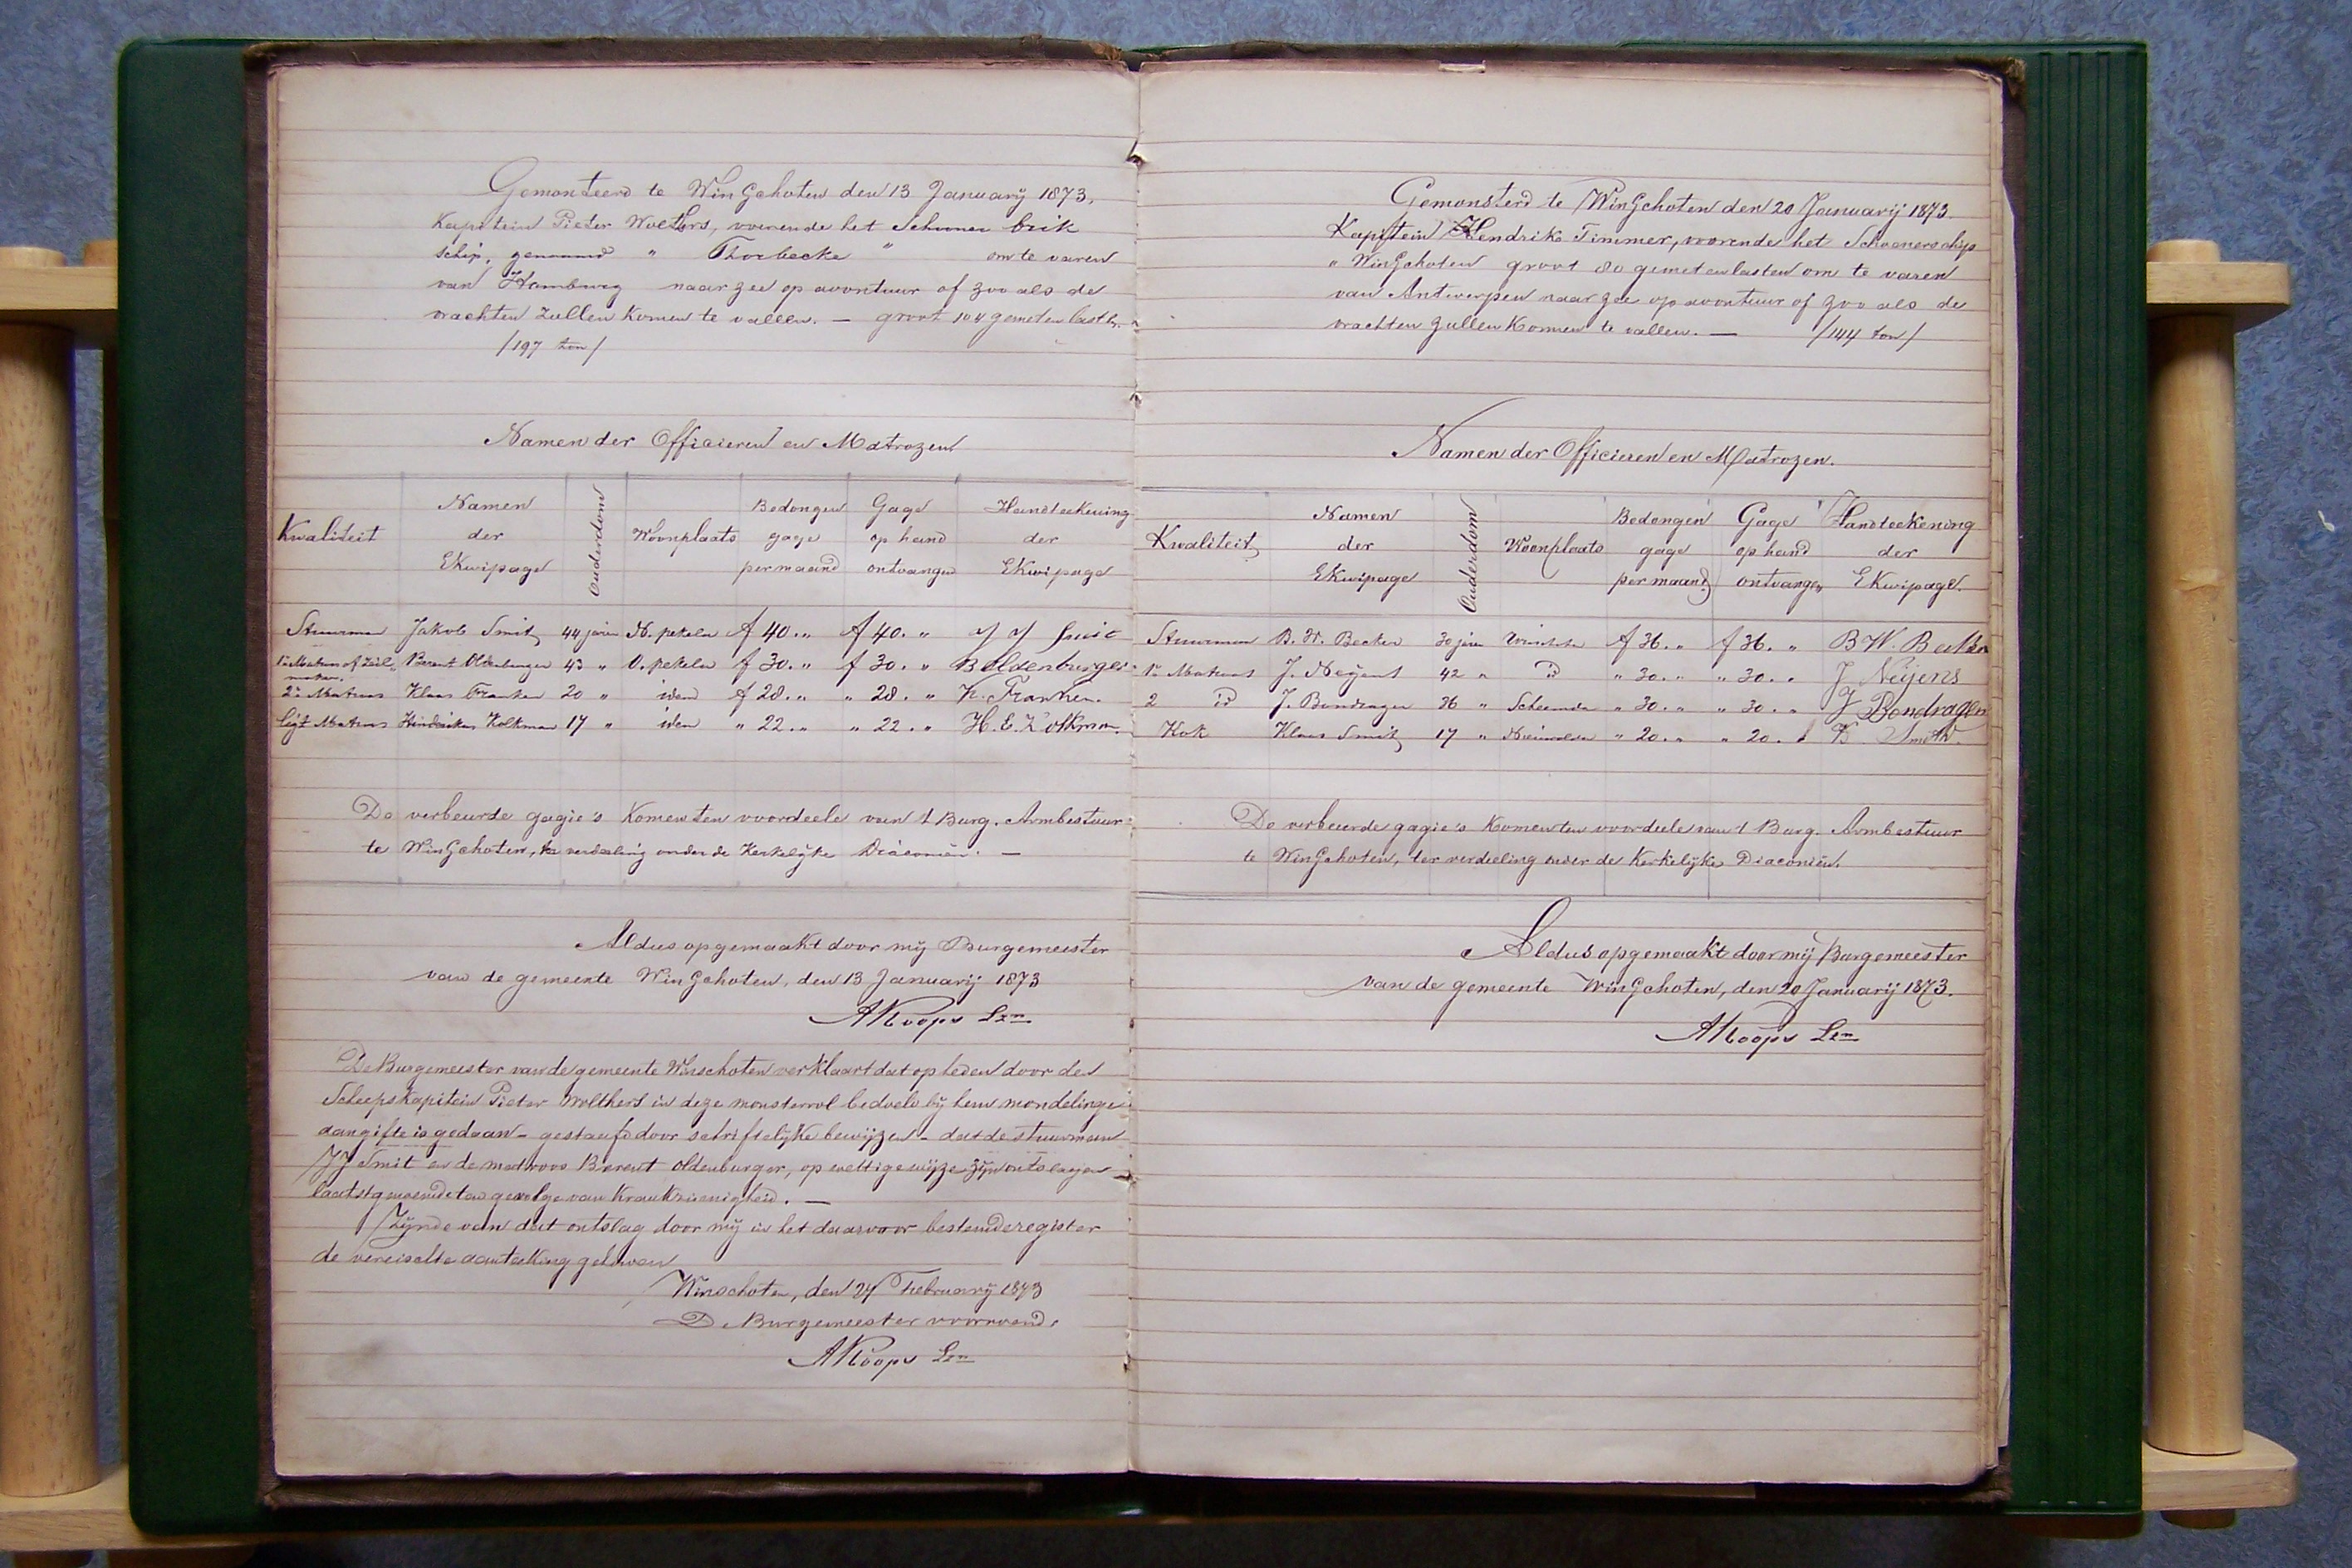 Gemonsterd te Winschoten den 13 Januarij 1873.
Kapitein Pieter Wolthers, voerende het Schooner brik
schip, genaamd " Thorbecke " om te varen
van Hamburg naar zee op avontuur of zoo als de
vrachten zullen komen te vallen. — groot 104 gemeten lasten
/197 ton/
Namen der Officieren en Matrozen
Kwaliteit Namen der Ekwipage Ouderdom Woonplaats Bedongen gage per maand Gage op hand ontvangen Handteekening der Ekwipage
Stuurman Jakob Smit 44 jaren N. pekela f 40. " f 40. " J J Smit
1e Matroos of Zeilmaker Berent Oldenburger 43 " O. pekela f 30. " f 30. " B Oldenburger
2e Matroos Klaas Franken 20 " idem f 28. " " 28. " K. Franken.
ligt Matroos Hindrikus Kolkman 17 " idem " 22. " " 22. " H. E. Kolkman.
De verbeurde gagie's komen ten voordeele van 't Burg. Armbestuur
te Winschoten, ter verdeeling onder de Kerkelijke Diaconiën. —
Aldus opgemaakt door mij Burgemeester
van de gemeente Winschoten, den 13 Januarij 1873
A Koops Lzn
De Burgemeester van de gemeente Winschoten verklaart dat op heden door den
Scheepskapitein Pieter Wolthers in deze monsterrol bedoeld bij hem mondelinge
aangifte is gedaan - gestaafd door schriftelijke bewijzen - dat de stuurman
JJ Smit en de matroos Berent Oldenburger, op wettige wijze zijn ontslagen
laatstgenoemde ten gevolge van krankzinnigheid. —
Zijnde van dat ontslag door mij in het daarvoor bestemde register
de vereischte aanteekening gedaan
Winschoten, den 27 February 1873
D Burgemeester voornoemd.
A Koops Lzn
Gemonsterd te Winschoten den 20 Januarij 1873
Kapitein Hendrik Timmer, voerende het Schoonerschip
" Winschoten groot 80 gemeten lasten om te varen
van Antwerpen naar zee op avontuur of zoo als de
vrachten zullen komen te vallen. — /144 ton/
Namen der Officieren en Matrozen.
Kwaliteit Namen der Ekwipage Ouderdom Woonplaats Bedongen gage per maand Gage op hand ontvangen Handteekening der Ekwipage.
Stuurman B. W. Becker 30 jaren Winschoten f 36. " f 36. " B W. Becker
1e Matroos J. Neijens 42 " id " 30. " " 30. " J Neijens
2 id J. Bondrager 36 " Scheemda " 30. " " 30. " J Bondrager
Kok Klaas Smit 17 " Nieuwolda " 20. " " 20. " K Smith.
De verbeurde gagie's komen ten voordeele van 't Burg. Armbestuur
te Winschoten, ter verdeeling onder de Kerkelijke Diaconiën.
Aldus opgemaakt door mij Burgemeester
van de gemeente Winschoten, den 20 Januarij 1873.
A Koops Lzn